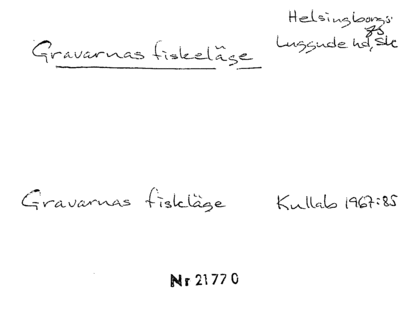 Helsingborgs
Gravarnas fiskeläge
Luggude hd, Sk
Gravarnas fiskläge Kullab 1967:85
Nr 21770